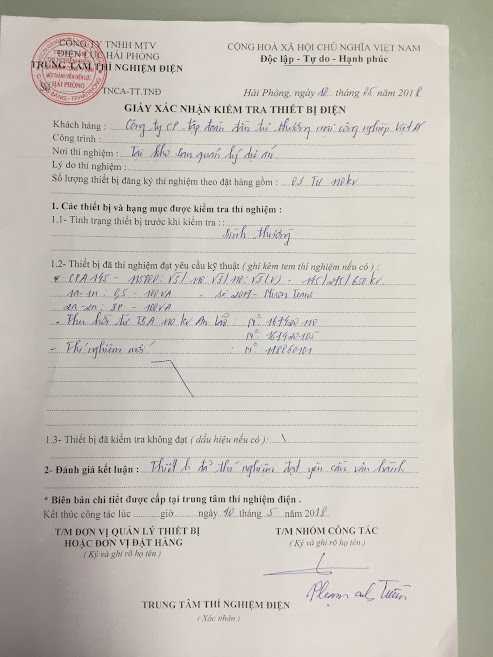 CÔNG TY TNHH MTV
ĐIỆN LỰC HẢI PHÒNG
TRUNG TÂM THÍ NGHIỆM ĐIỆN
TNCA-TT.TNĐ
CỘNG HOÀ XÃ HỘI CHỦ NGHĨA VIỆT NAM
Độc lập - Tự do - Hạnh phúc
Hải Phòng, ngày 10 tháng 05 năm 2018
GIẤY XÁC NHẬN KIỂM TRA THIẾT BỊ ĐIỆN
Khách hàng : Công ty CP tập đoàn đầu tư thương mại công nghiệp Việt Á
Công trình :
Nơi thí nghiệm : Tại kho ban quản lý dự án
Lý do thí nghiệm :
Số lượng thiết bị đăng ký thí nghiệm theo đặt hàng gồm : 03 TU 110kV
1. Các thiết bị và hạng mục được kiểm tra thí nghiệm :
1.1- Tình trạng thiết bị trước khi kiểm tra :
Bình thường
1.2- Thiết bị đã thí nghiệm đạt yêu cầu kỹ thuật ( ghi kèm tem thí nghiệm nếu có ) :
1a-1n : 0,5 - 100VA - sx 2017
2a-2n : 3P - 100VA
- Thu hồi từ TBA 110 kV An Lão : N° 167920110
N° 167920105
- Thí nghiệm mới : N° 118860101
1.3- Thiết bị đã kiểm tra không đạt ( dấu hiệu nếu có ): \
2- Đánh giá kết luận : Thiết bị đã thí nghiệm đạt yêu cầu vận hành
* Biên bản chi tiết được cấp tại trung tâm thí nghiệm điện .
Kết thúc công tác lúc ......... giờ ........ ngày 10 tháng 5 năm 2018
T/M ĐƠN VỊ QUẢN LÝ THIẾT BỊ
HOẶC ĐƠN VỊ ĐẶT HÀNG
( Ký và ghi rõ họ tên )
T/M NHÓM CÔNG TÁC
( Ký và ghi rõ họ tên )
Phạm Anh Tuấn
TRUNG TÂM THÍ NGHIỆM ĐIỆN
( Xác nhận )